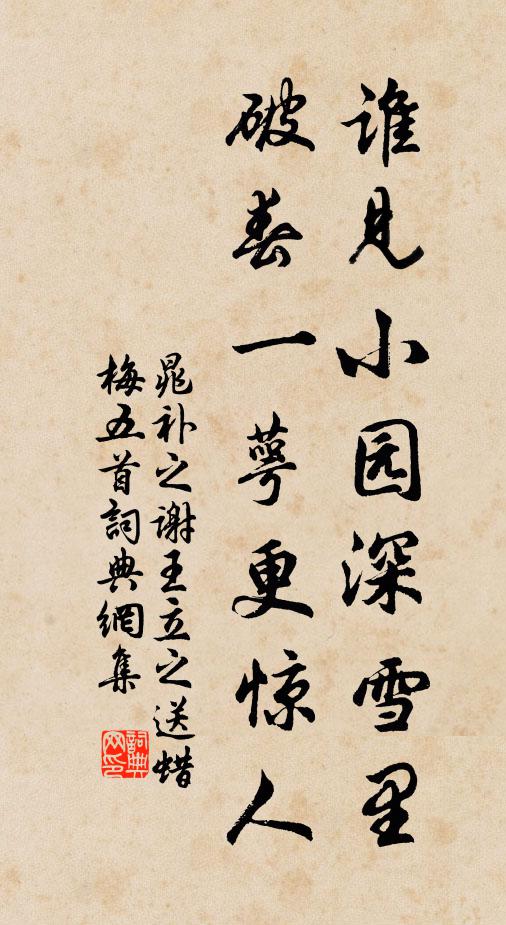 谁见小园深雪里
破春一萼更惊人
晁补之谢王立之送蜡
梅五首词典網集
詞典
网印